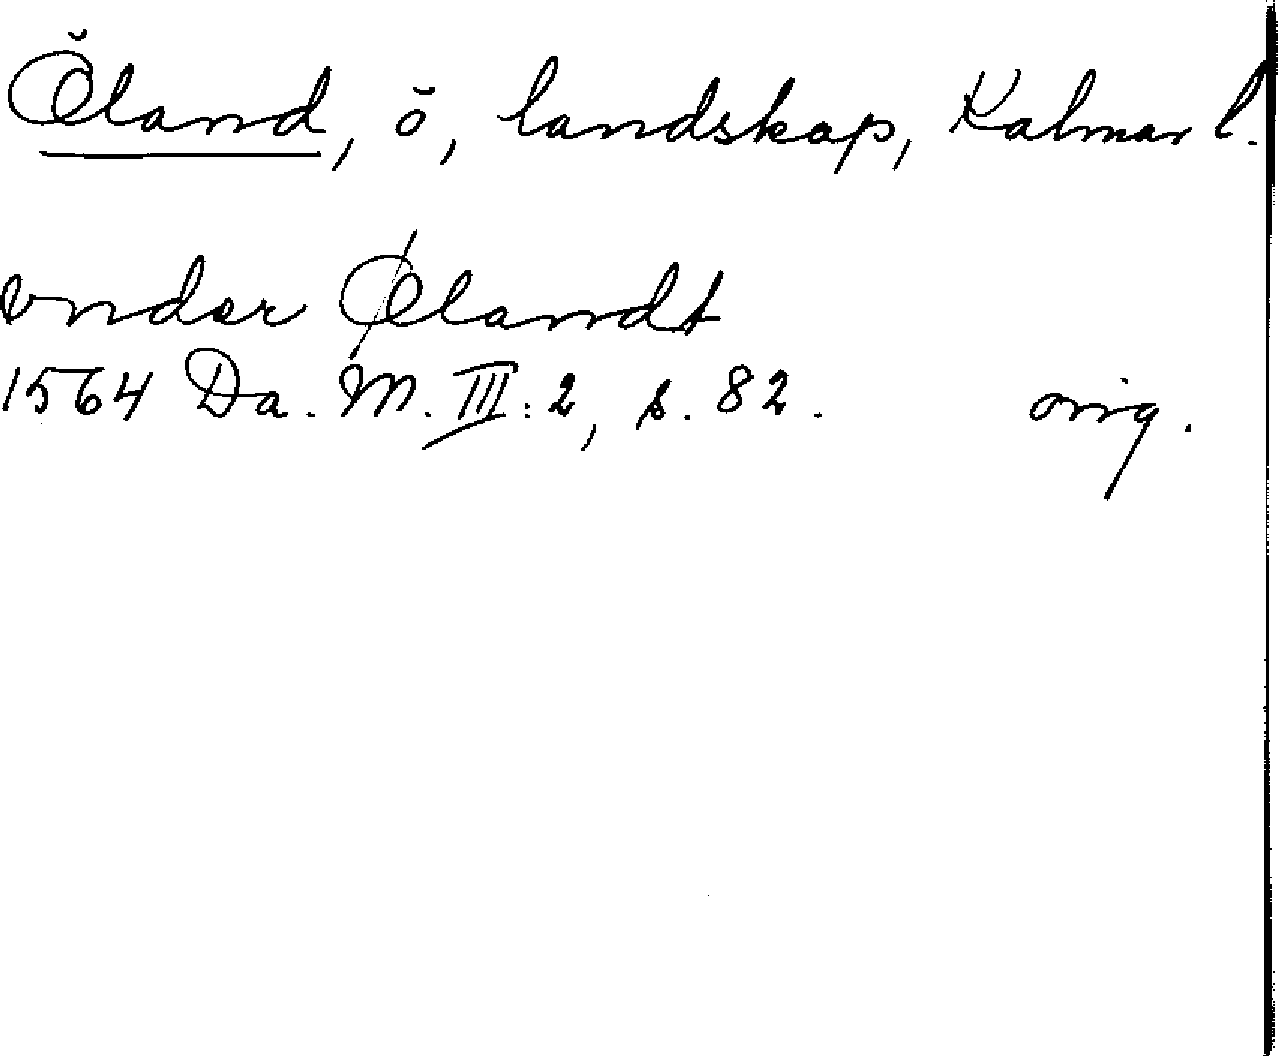 Öland, ö, landskap, Kalmar l.
vnder Ølandt
1564 Da. M. III: 2, s. 82. orig.